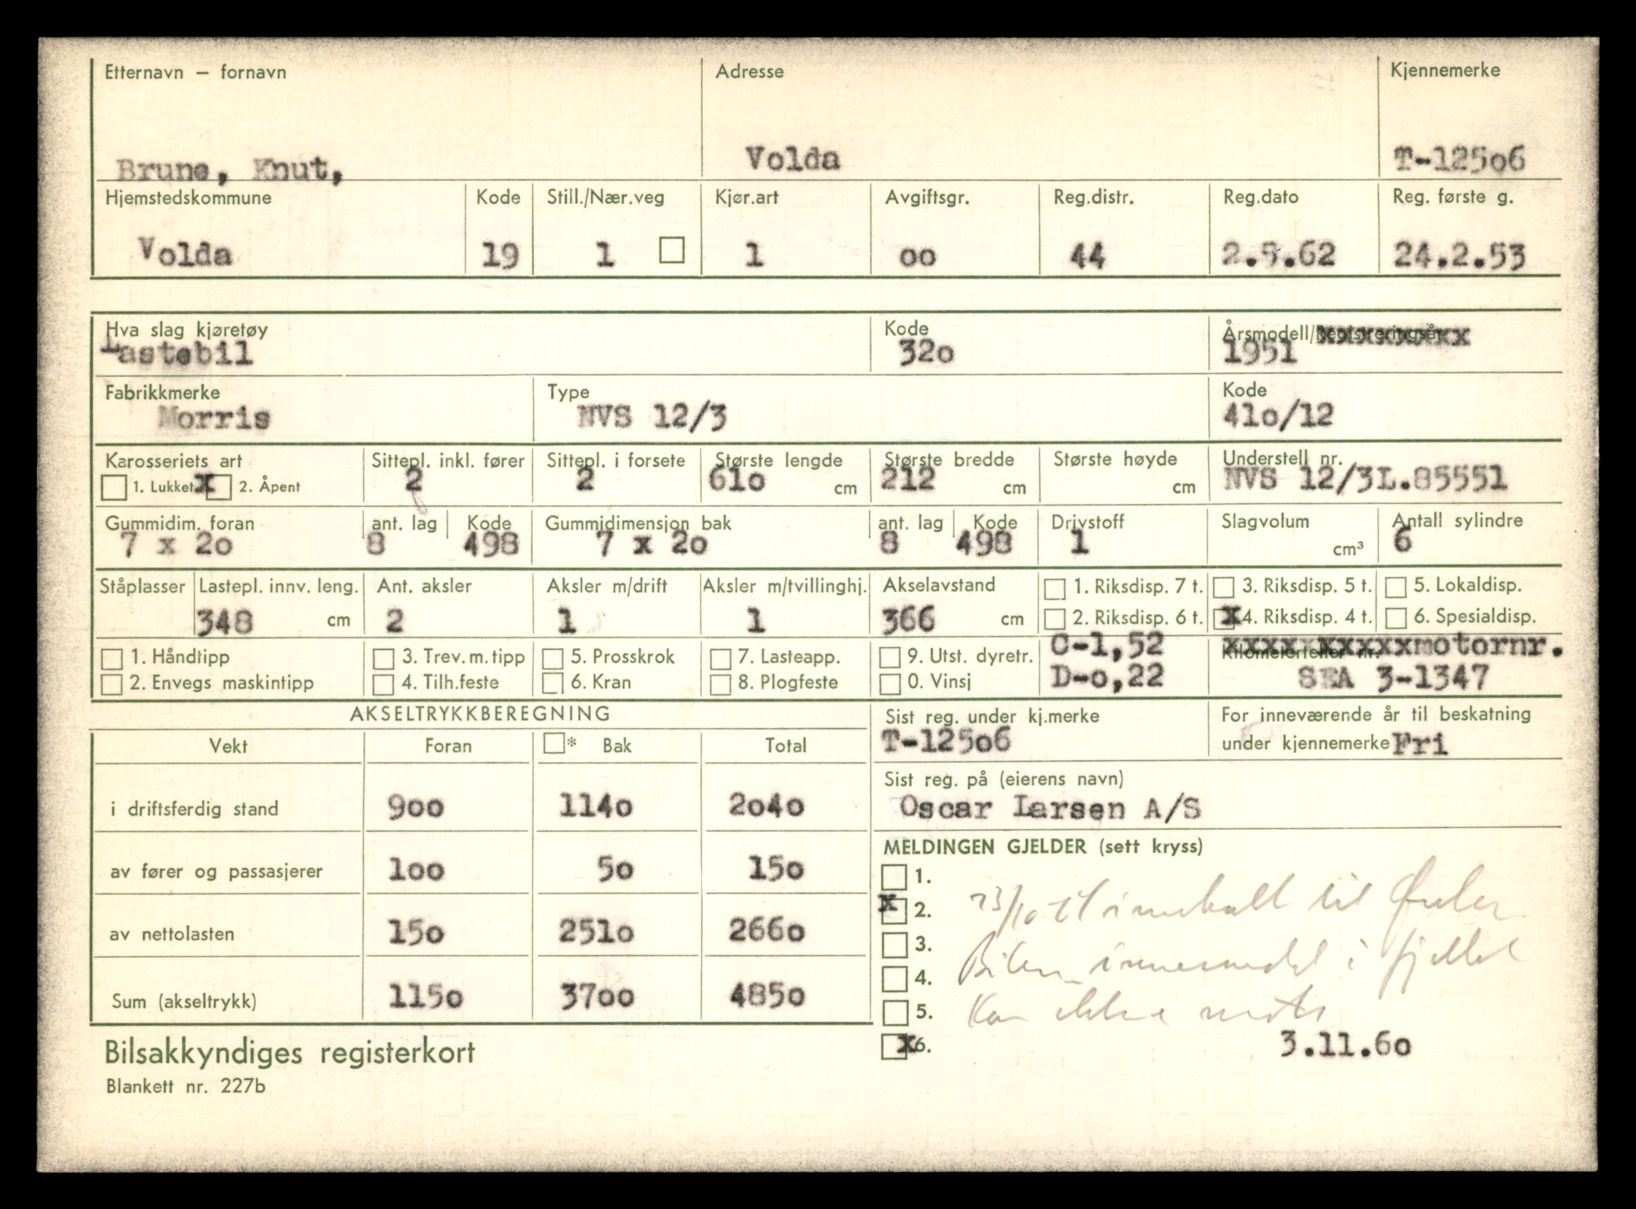 Etternavn — fornavn Adresse Kjennemerke
Brune, Knut, Volda T-12506
Hjemstedskommune Kode Still./Nær.veg Kjør.art Avgiftsgr. Reg.distr. Reg.dato Reg. første g.
Volda 19 1 1 oo 44 24.2.53
Hva slag kjøretøy Kode Årsmodell/
Lastebil 32o 1951
Fabrikkmerke Type Kode
Morris NVS 12/3 41o/12
Karosseriets art Sittepl. inkl. fører Sittepl. i forsete Største lengde Største bredde Største høyde Understell nr.
1. Lukket x 2. Åpent 2 2 61o cm 212 cm cm NVS 12/3L.85551
Gummidim. foran ant. lag Kode Gummidimensjon bak ant. lag Kode Drivstoff Slagvolum Antall sylindre
7 x 2o 8 498 7 x 2o 8 498 1 cm³ 6
Ståplasser Lastepl. innv. leng. Ant. aksler Aksler m/drift Aksler m/tvillinghj. Akselavstand 1. Riksdisp. 7 t. 3. Riksdisp. 5 t. 5. Lokaldisp.
348 cm 2 1 1 366 cm 2. Riksdisp. 6 t. x 4. Riksdisp. 4 t. 6. Spesialdisp.
1. Håndtipp 3. Trev.m.tipp 5. Prosskrok 7. Lasteapp. 9. Utst. dyretr. C-1,52 motornr.
2. Envegs maskintipp 4. Tilh.feste 6. Kran 8. Plogfeste 0. Vinsj D-o,22 SEA 3-1347
AKSELTRYKKBEREGNING Sist reg. under kj.merke For inneværende år til beskatning
Vekt Foran * Bak Total T-125o6 under kjennemerke Fri
Sist reg. på (eierens navn)
i driftsferdig stand 9oo 114o 2o4o Oscar Larsen A/S
MELDINGEN GJELDER (sett kryss)
av fører og passasjerer 1oo 5o 15o 1.
x 2. innkalt til
av nettolasten 15o 251o 266o 3.
4. Bilen i fjellet
Sum (akseltrykk) 115o 37oo 485o 5. Kan ikke
x 6. 3.11.6o
Bilsakkyndiges registerkort
Blankett nr. 227b